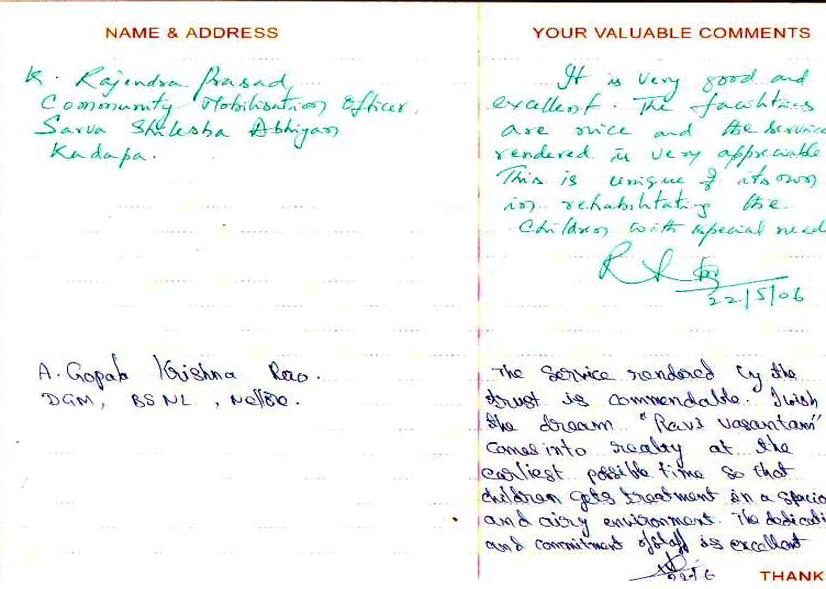 NAME & ADDRESS
K. Rajendra Prasad,
Community Mobilisation Officer,
Sarva Shiksha Abhiyan
Kadapa.
A. Gopala Krishna Rao.
DGM, BSNL, Nellore.
YOUR VALUABLE COMMENTS
It is very good and
excellent. The facilities
are nice and the service
rendered is very appreciable
This is unique of its own
in rehabilitating the
Children with special need
22/5/06
The Service rendered by the
trust is commendable. I wish
the dream "Ravi Vasantam"
comes into realty at the
earliest possible time so that
children gets treatment in a spacio
and airy environment. The dedicati
and commitment of staff is excellent
22/6
THANK